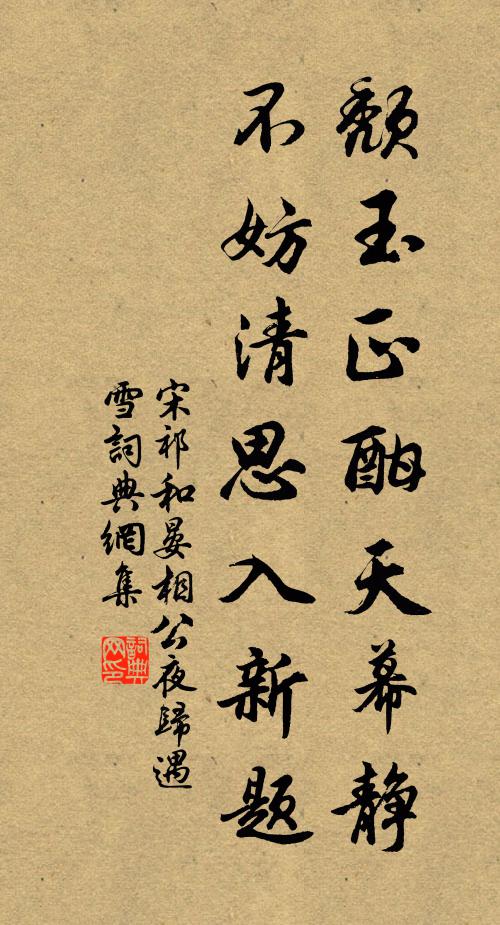 颓玉正酣天幕静
不妨清思入新题
宋祁和晏相公夜歸遇
雪詞典網集
詞典
网印